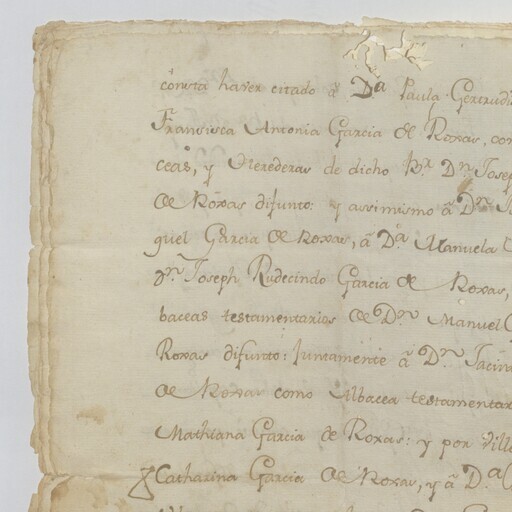 consta haver citado â D.ª Paula Gertrudi
Fransisca Antonia Garcia de Roxas, com
ceas, y Herederas de dicho B.r D.n Josep
de Roxas difunto: y assimismo â D.n
guel Garcia de Roxas, â D.ª Manuela
D.n Joseph Rudecindo Garcia de Roxas,
baceas testamentarios de D.n Manuel
Roxas difunto: Juntamente â D.n Jacin
de Roxas como Albacea testamentar
Mathiana Garcia de Roxas: y por
Catharina Garcia de Roxas, y â D.ª